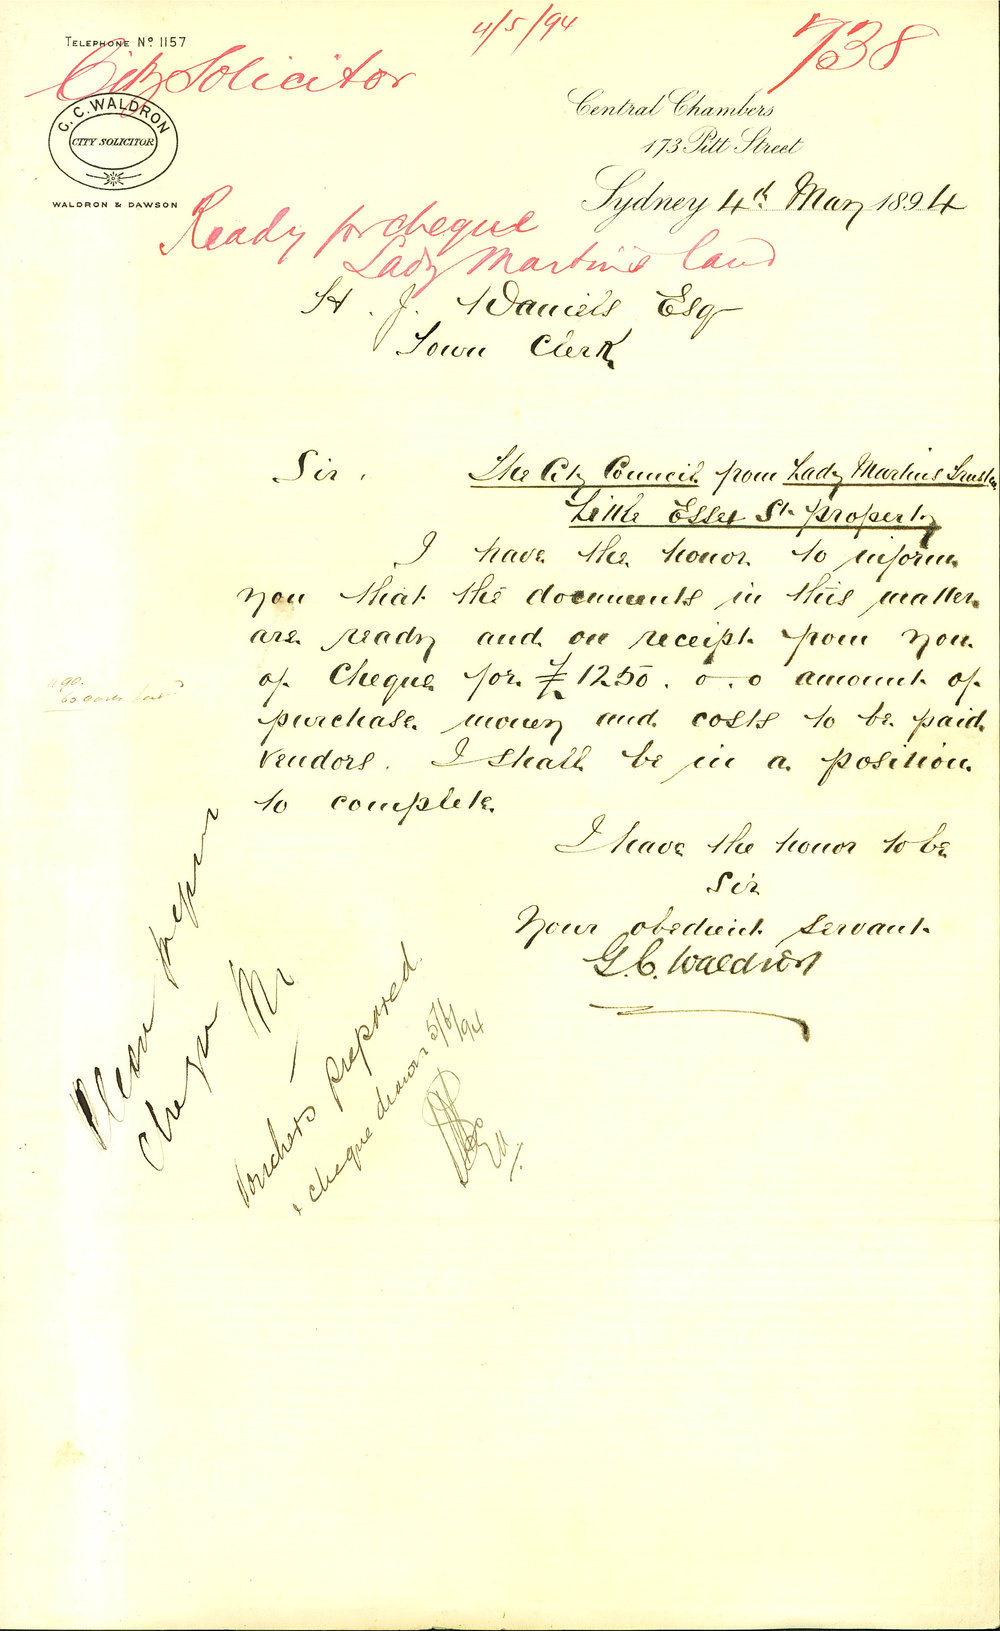 4/5/94
738
TELEPHONE Nº 1157
City Solicitor
G. C. WALDRON
CITY SOLICITOR
WALDRON & DAWSON
Central Chambers
173 Pitt Street
Sydney 4th May 1894
Ready for cheque
Lady Martin's land
H. J. Daniels Esq
Town Clerk
Sir,
The City Council from Lady Martins Trustees
Little Essex St. property
I have the honor to inform
you that the documents in this matter
are ready and on receipt from you
of Cheque for £1250. 0. 0 amount of
purchase money and costs to be paid
vendors. I shall be in a position
to complete
I have the honor to be
Sir
Your obedient servant
G. C. Waldron
Please prepare
cheque
Vouchers prepared
& cheque drawn 5/6/94